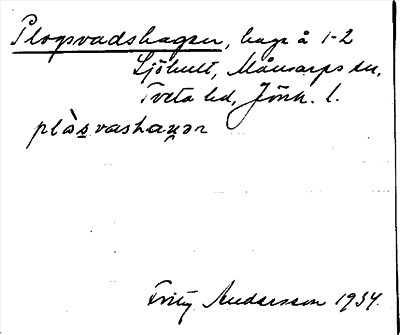 Plogsvadshagen, hage å 1-2
Sjöhult, Månsarps sn,
Tveta hd, Jönk. l.
plòsvashaɡən
Fritz Andersson 1934.